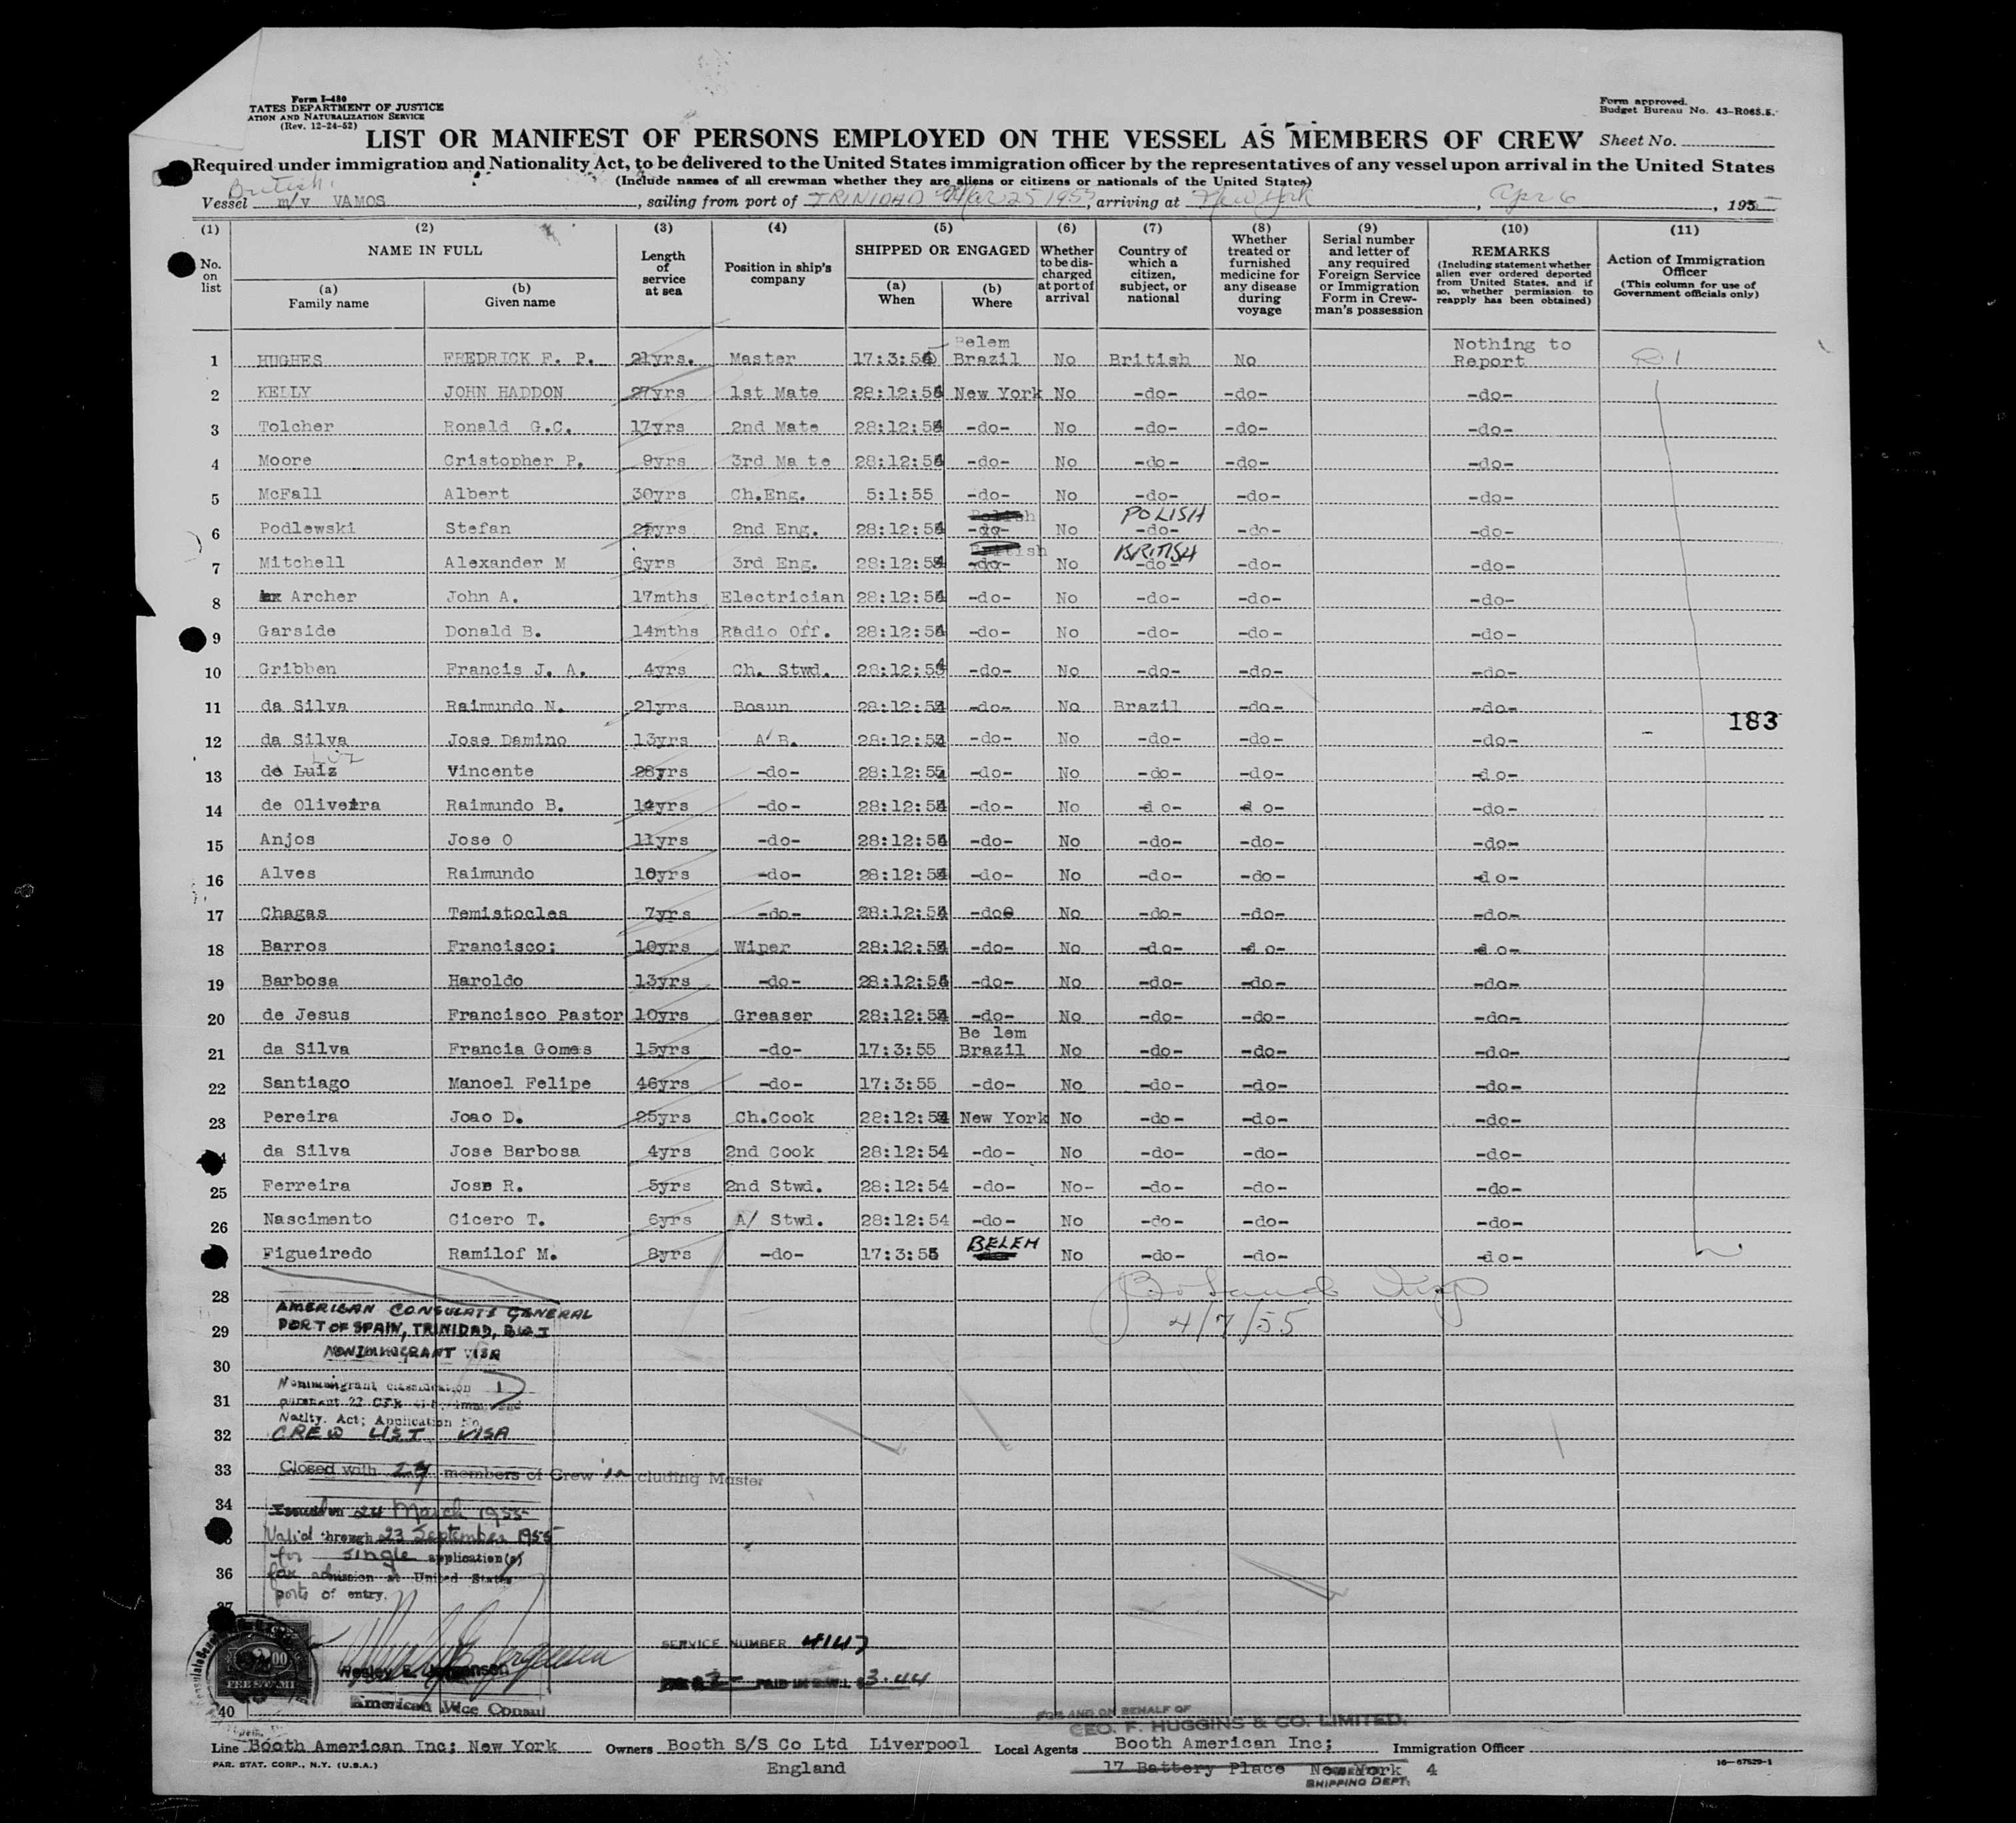 Form I-480
TATES DEPARTMENT OF JUSTICE
ATION AND NATURALIZATION SERVICE
(Rev. 12-24-52)
Form approved.
Budget Bureau No. 43-R065.5.
LIST OR MANIFEST OF PERSONS EMPLOYED ON THE VESSEL AS MEMBERS OF CREW Sheet No.
Required under immigration and Nationality Act, to be delivered to the United States immigration officer by the representatives of any vessel upon arrival in the United States
(Include names of all crewman whether they are aliens or citizens or nationals of the United States)
British
Vessel m/v VAMOS, sailing from port of TRINIDAD Mar 25 1955, arriving at New York, Apr 6, 1955
(1) (2) (3) (4) (5) (6) (7) (8) (9) (10) (11)
No. on list
NAME IN FULL
(a) Family name
(b) Given name
Length of service at sea
Position in ship's company
SHIPPED OR ENGAGED
(a) When
(b) Where
Whether to be discharged at port of arrival
Country of which a citizen, subject, or national
Whether treated or furnished medicine for any disease during voyage
Serial number and letter of any required Foreign Service or Immigration Form in Crewman's possession
REMARKS
(Including statement whether alien ever ordered deported from United States, and if so, whether permission to reapply has been obtained)
Action of Immigration Officer
(This column for use of Government officials only)
1 HUGHES FREDRICK F. P. 21yrs. Master 17:3:55 Belem Brazil No British No Nothing to Report
2 KELLY JOHN HADDON 27yrs 1st Mate 28:12:54 New York No -do- -do- -do-
3 Tolcher Ronald G.C. 17yrs 2nd Mate 28:12:54 -do- No -do- -do- -do-
4 Moore Cristopher P. 9yrs 3rd Ma te 28:12:54 -do- No -do- -do- -do-
5 McFall Albert 30yrs Ch.Eng. 5:1:55 -do- No -do- -do- -do-
6 Podlewski Stefan 25yrs 2nd Eng. 28:12:54 -do- No POLISH -do- -do- -do-
7 Mitchell Alexander M 6yrs 3rd Eng. 28:12:54 -do- No BRITISH -do- -do- -do-
8 Archer John A. 17mths Electrician 28:12:54 -do- No -do- -do- -do-
9 Garside Donald B. 14mths Radio Off. 28:12:54 -do- No -do- -do- -do-
10 Gribben Francis J. A. 4yrs Ch. Stwd. 28:12:54 -do- No -do- -do- -do-
11 da Silva Raimundo N. 21yrs Bosun 28:12:54 -do- No Brazil -do- -do-
183
12 da Silva Jose Damino 13yrs A/B. 28:12:54 -do- No -do- -do- -do-
13 de Luiz LUZ Vincente 28yrs -do- 28:12:54 -do- No -do- -do- -do-
14 de Oliveira Raimundo B. 14yrs -do- 28:12:54 -do- No -do- -do- -do-
15 Anjos Jose O 11yrs -do- 28:12:54 -do- No -do- -do- -do-
16 Alves Raimundo 10yrs -do- 28:12:54 -do- No -do- -do- -do-
17 Chagas Temistocles 7yrs -do- 28:12:54 -do- No -do- -do- -do-
18 Barros Francisco; 10yrs Wiper 28:12:54 -do- No -do- -do- -do-
19 Barbosa Haroldo 13yrs -do- 28:12:54 -do- No -do- -do- -do-
20 de Jesus Francisco Pastor 10yrs Greaser 28:12:54 -do- No -do- -do- -do-
21 da Silva Francia Gomes 15yrs -do- 17:3:55 Be lem Brazil No -do- -do- -do-
22 Santiago Manoel Felipe 46yrs -do- 17:3:55 -do- No -do- -do- -do-
23 Pereira Joao D. 25yrs Ch.Cook 28:12:54 New York No -do- -do- -do-
da Silva Jose Barbosa 4yrs 2nd Cook 28:12:54 -do- No -do- -do- -do-
25 Ferreira Jose R. 5yrs 2nd Stwd. 28:12:54 -do- No- -do- -do- -do-
26 Nascimento Cicero T. 6yrs A/ Stwd. 28:12:54 -do- No -do- -do- -do-
Figueiredo Ramilof M. 8yrs -do- 17:3:55 BELEM No -do- -do- -do-
28
AMERICAN CONSULATE GENERAL
29 PORT OF SPAIN, TRINIDAD, B.W.I
4/7/55
NONIMMIGRANT VISA
30
Nonimmigrant classification
31
Natlty. Act; Application No
32 CREW LIST VISA
33 Closed with 27 members of Crew including Master
34 Issued on 24 March 1955
Valid through 23 September 1955
for single application(s)
36 for admission at United States
ports of entry.
37
2.00
FEE STAMP
SERVICE NUMBER 4147
Wesley E. Jorgensen
3.44
American Vice Consul
40
FOR AND ON BEHALF OF
GEO. F. HUGGINS & CO. LIMITED.
Line Booth American Inc; New York Owners Booth S/S Co Ltd Liverpool England Local Agents Booth American Inc; Immigration Officer
17 Battery Place New York 4
SHIPPING DEPT.
PAR. STAT. CORP., N.Y. (U.S.A.)
16-67529-1